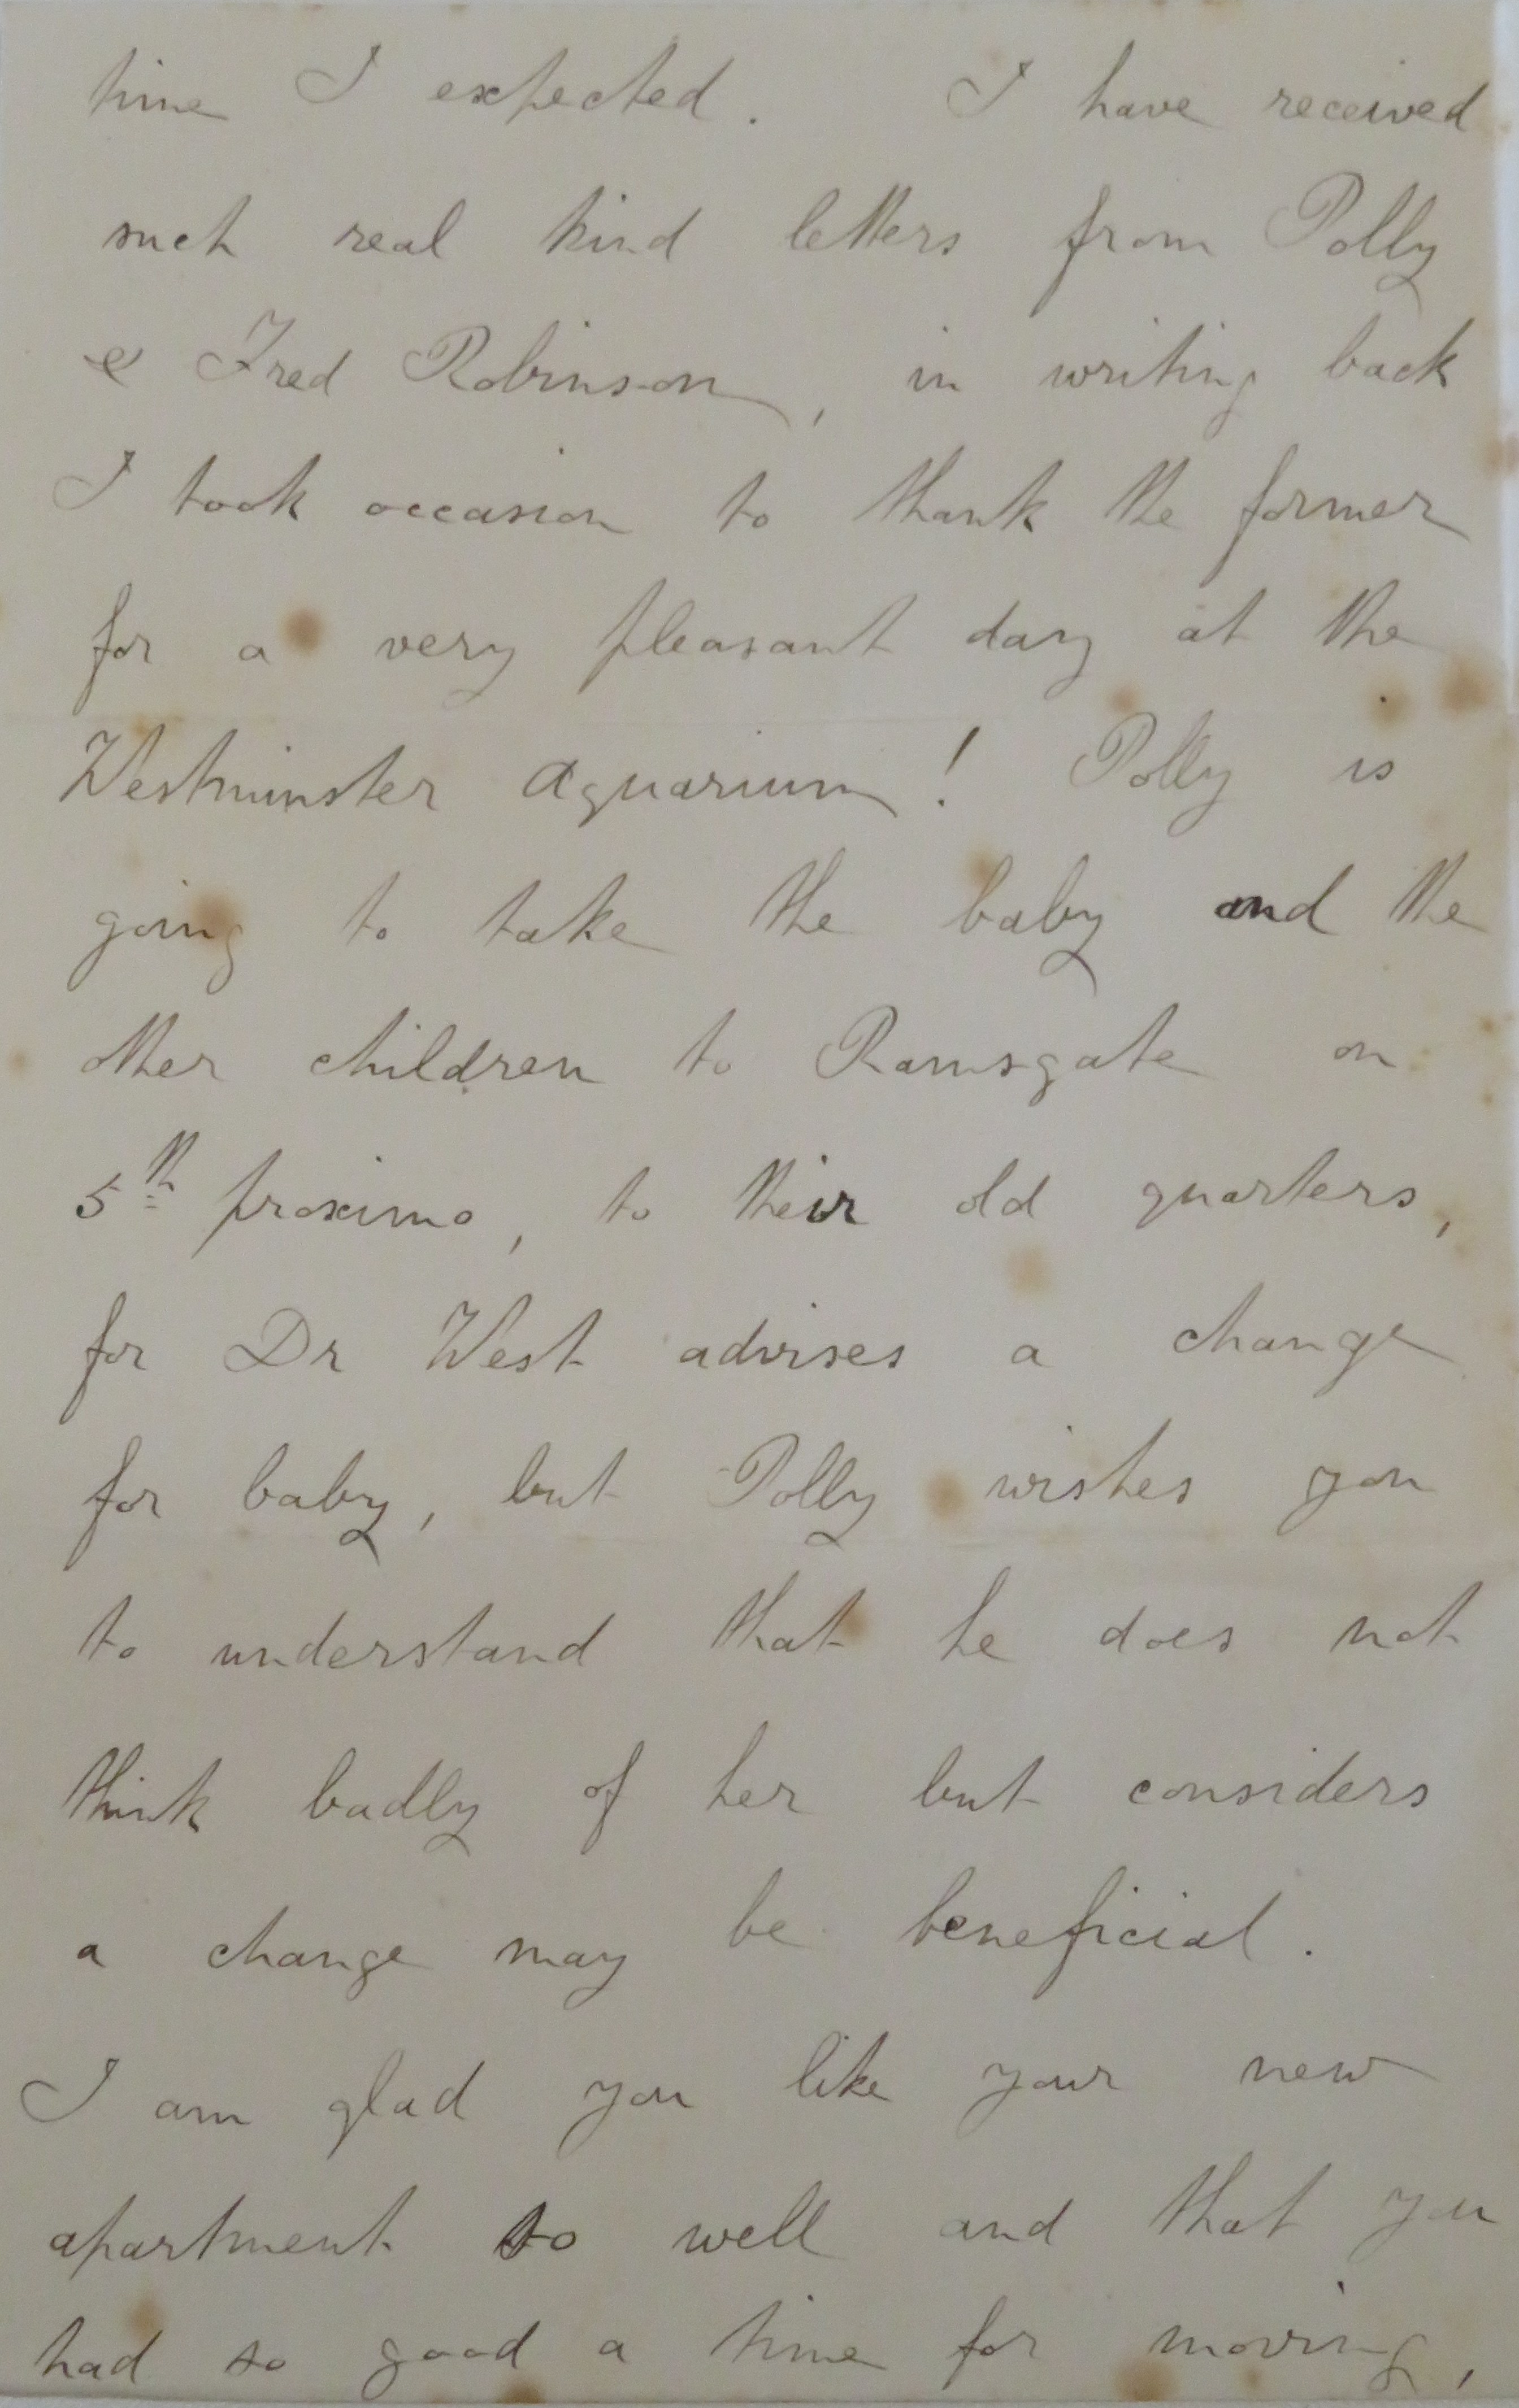 time I expected. I have received
such real kind letters from Polly
& Fred Robinson, in writing back
I took occasion to thank the former
for a very pleasant day at the
Westminster Aquarium! Polly is
going to take the baby and the
other children to Ramsgate on
5th proximo, to their old quarters,
for Dr West advises a change
for baby, but Polly wishes you
to understand that he does not
think badly of her but considers
a change may be beneficial.
I am glad you like your new
apartment so well and that you
had so good a time for moving,